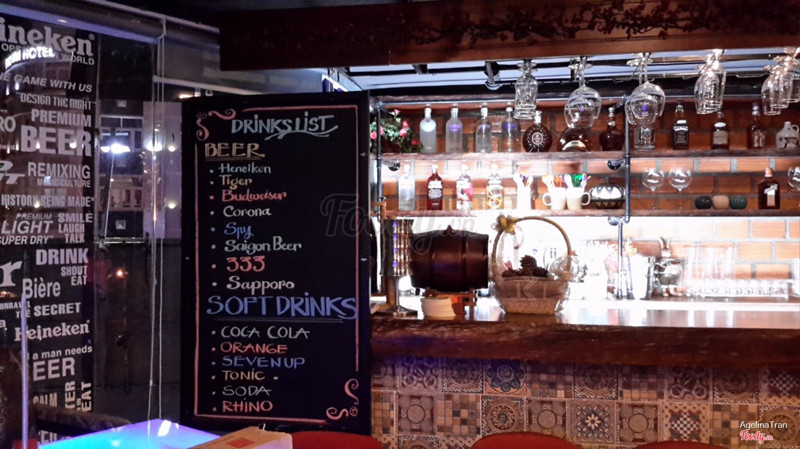 Heineken
GAME WITH US
"DESIGN THE NIGHT
PREMIUM
BEER
REMIXING
MUSIC/CULTURE
HISTORY BEING MADE"
PREMIUM
LIGHT
SMILE
LAUGH
SUPER DRY"
TALK
DRINK
SHOUT
EAT
Bière
THE SECRET
Heineken
a man needs
BEER
DRINKS LIST
BEER
• Heneiken
• Tiger
• Budwaiser
• Corona
• Spy
• Saigon Beer
• 333
• Sapporo
SOFT DRINKS
• COCA COLA
• ORANGE
• SEVEN UP
• TONIC
• SODA
• RHINO
Foody.vn
AgelinaTran
Foody.vn